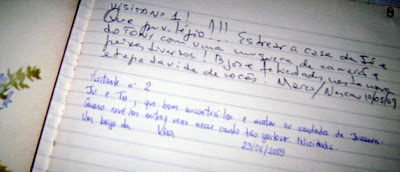 VISITANDO 1! !!!
Que privilégio!! Estrear a casa da Jú e
do Tom com uma moqueca de camarão e
peixes diversos! Bjos e felicidades nesta nova
etapa da vida de vocês Marco/Neusa 10/05/09
Visitante nº 2
Ju e Tom, que bom encontrá-los e matar as saudades de
Quero revê-los outras vezes nesse canto tão gostoso. Felicidades.
Um beijo da Vera
29/06/2009
8